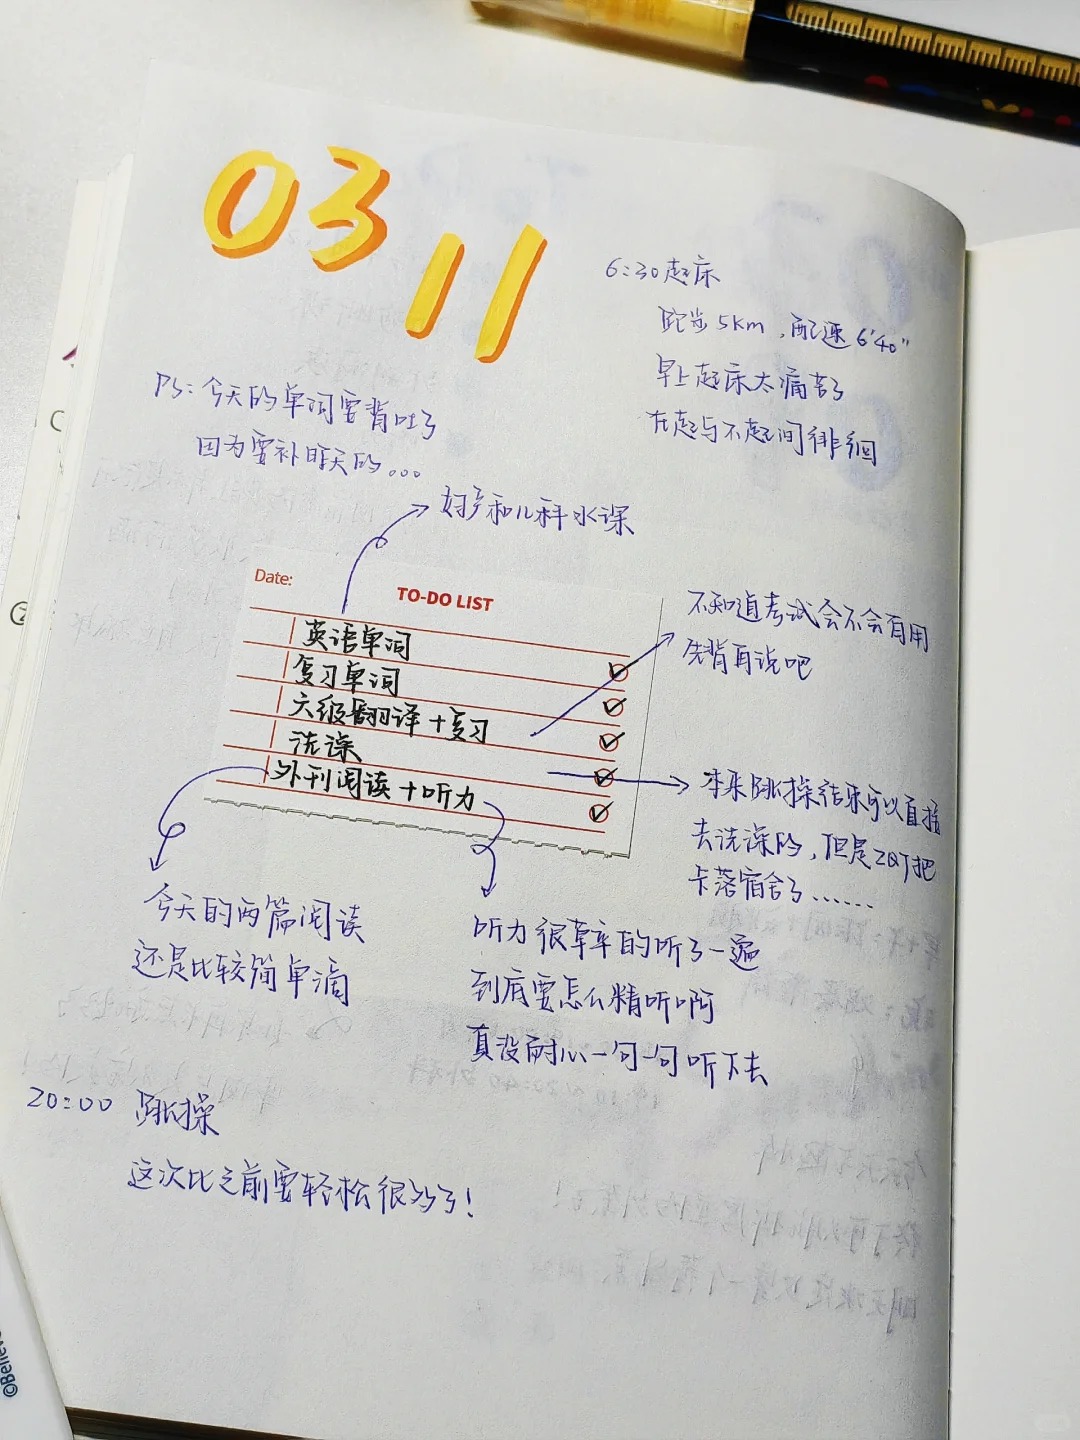 03
11
6:30起床
跑步5Km，配速6'40"
早上起床太痛苦了
在起与不起间徘徊
PS:今天的单词要背吐了
因为要补昨天的...
妇产和儿科水课
Date:
TO-DO LIST
英语单词
复习单词
六级翻译+复习
洗澡
外刊阅读+听力
不知道考试会不会有用
先背再说吧
本来跳操结束可以直接
去洗澡的，但是ZQT把
卡落宿舍了......
今天的两篇阅读
还是比较简单滴
听力很草率的听了一遍
到底要怎么精听啊
真没耐心一句一句听下去
20:00 跳操
这次比之前要轻松很多了！
©Believe